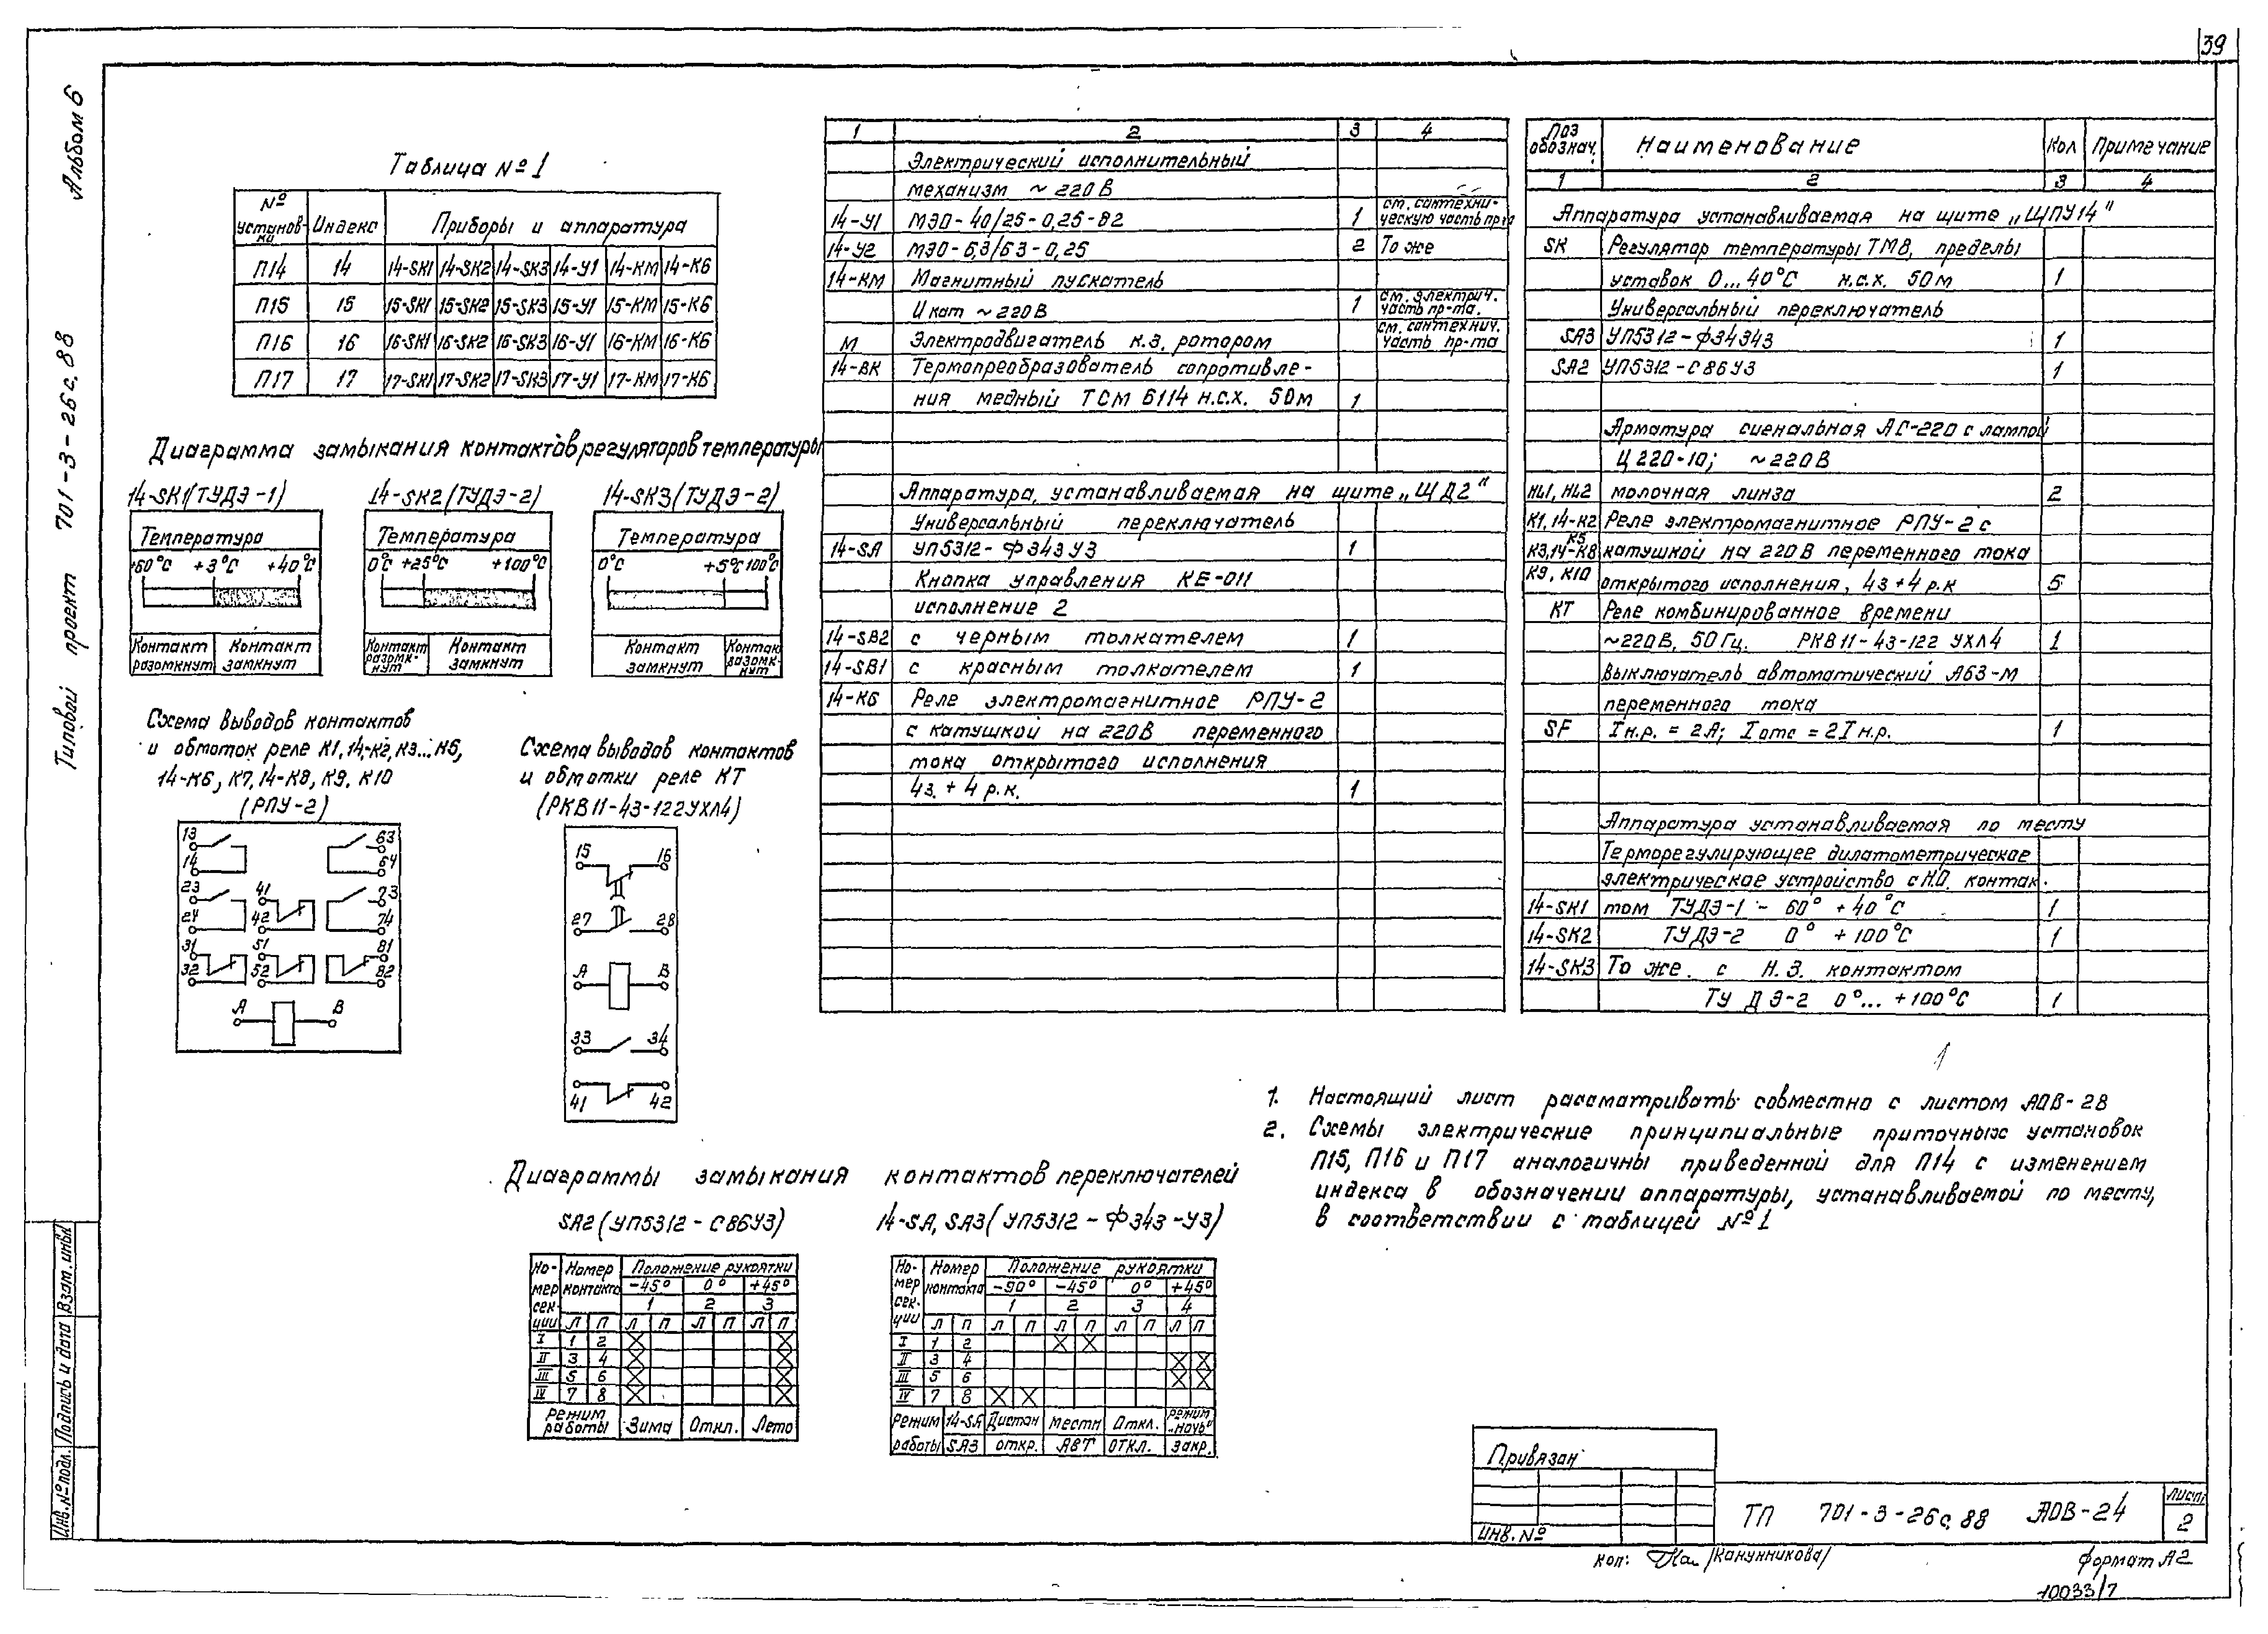 39
Альбом 6
Типовой проект 701-3-26с.88
Таблица №1
№ установ-ки Индекс Приборы и аппаратура
П14 14 14-SK1 14-SK2 14-SK3 14-У1 14-КМ 14-К6
П15 15 15-SK1 15-SK2 15-SK3 15-У1 15-КМ 15-К6
П16 16 16-SK1 16-SK2 16-SK3 16-У1 16-КМ 16-К6
П17 17 17-SK1 17-SK2 17-SK3 17-У1 17-КМ 17-К6
Диаграмма замыкания контактов регуляторов температуры
14-SK1 (ТУДЭ-1)
Температура
-60°С +3°С +40°С
Контакт разомкнут Контакт замкнут
14-SK2 (ТУДЭ-2)
Температура
0°С +25°С +100°С
Контакт разомк-нут Контакт замкнут
14-SK3 (ТУДЭ-2)
Температура
0°С +5°С 100°С
Контакт замкнут Контак разомк-нут
Схема выводов контактов
и обмоток реле К1, 14-К2, К3...К5,
14-К6, К7, 14-К8, К9, К10
(РПУ-2)
13 63
14 64
23 41 73
24 42 74
31 51 81
32 52 82
А В
Схема выводов контактов
и обмотки реле КТ
(РКВ11-43-122УХЛ4)
15 16
27 28
А В
33 34
41 42
1 2 3 4
Электрический исполнительный
механизм ~220В
14-У1 МЭО-40/25-0,25-82 1 см. сантехни-ческую часть пр-та
14-У2 МЭО-6,3/63-0,25 2 То же
14-КМ Магнитный пускатель
И кат ~220В 1 см. электрич. часть пр-та.
М Электродвигатель к.з. ротором см. сантехнич. часть пр-та
14-ВК Термопреобразователь сопротивле-
ния медный ТСМ 6114 н.с.х. 50м 1
Аппаратура, устанавливаемая на щите „ЩД2"
Универсальный переключатель
14-SA УП5312-Ф343У3 1
Кнопка управления КЕ-011
исполнение 2
14-SB2 с черным толкателем 1
14-SB1 с красным толкателем 1
14-К6 Реле электромагнитное РПУ-2
с катушкой на 220В переменного
тока открытого исполнения
4з. + 4 р.к. 1
Поз обознач. Наименование Кол Примечание
1 2 3 4
Аппаратура устанавливаемая на щите „ЩПУ14"
SK Регулятор температуры ТМ8, пределы
уставок 0...40°С н.с.х. 50м 1
Универсальный переключатель
SA3 УП5312-Ф34343 1
SA2 УП5312-С86У3 1
Арматура сигнальная АС-220 с лампой
Ц220-10; ~220В
HL1, HL2 молочная линза 2
К1, 14-К2 Реле электромагнитное РПУ-2 с
К5
К3,14-К8 катушкой на 220В переменного тока
К9, К10 открытого исполнения, 4з+4 р.к 5
КТ Реле комбинированное времени
~220В, 50Гц. РКВ11-43-122 УХЛ4 1
Выключатель автоматический А63-М
переменного тока
SF Iн.р. = 2А; Iотс = 2Iн.р. 1
Аппаратура устанавливаемая по месту
Терморегулирующее дилатометрическое
электрическое устройство с Н.О. контак.
14-SK1 том ТУДЭ-1 - 60° +40°С 1
14-SK2 ТУДЭ-2 0° +100°С 1
14-SK3 То же. с Н.З. контактом
ТУДЭ-2 0°... +100°С 1
1. Настоящий лист рассматривать совместно с листом АОВ-28
2. Схемы электрические принципиальные приточных установок
П15, П16 и П17 аналогичны приведенной для П14 с изменением
индекса в обозначении аппаратуры, устанавливаемой по месту,
в соответствии с таблицей №1
Диаграммы замыкания контактов переключателей
SA2 (УП5312-С86У3)
Но-мер сек-ции Номер контакта Положение рукоятки
-45° 0° +45°
1 2 3
Л П Л П Л П Л П
I 1 2 X X
II 3 4 X X
III 5 6 X X
IV 7 8 X X
Режим работы Зима Откл. Лето
14-SA, SA3 (УП5312-Ф343-У3)
Но-мер сек-ции Номер контакта Положение рукоятки
-90° -45° 0° +45°
1 2 3 4
Л П Л П Л П Л П Л П
I 1 2 X X
II 3 4 X X
III 5 6 X X
IV 7 8 X X
Режим 14-SA Дистан местн Откл. Режим „ночь"
работы SA3 откр. АВТ ОТКЛ. закр.
Привязан
Инв. №
ТП 701-3-26с.88 АОВ-24
Лист
2
Коп: /Канунникова/
Формат А2
10033/7
Взам. инв.№
Подпись и дата
Инв.№ подл.